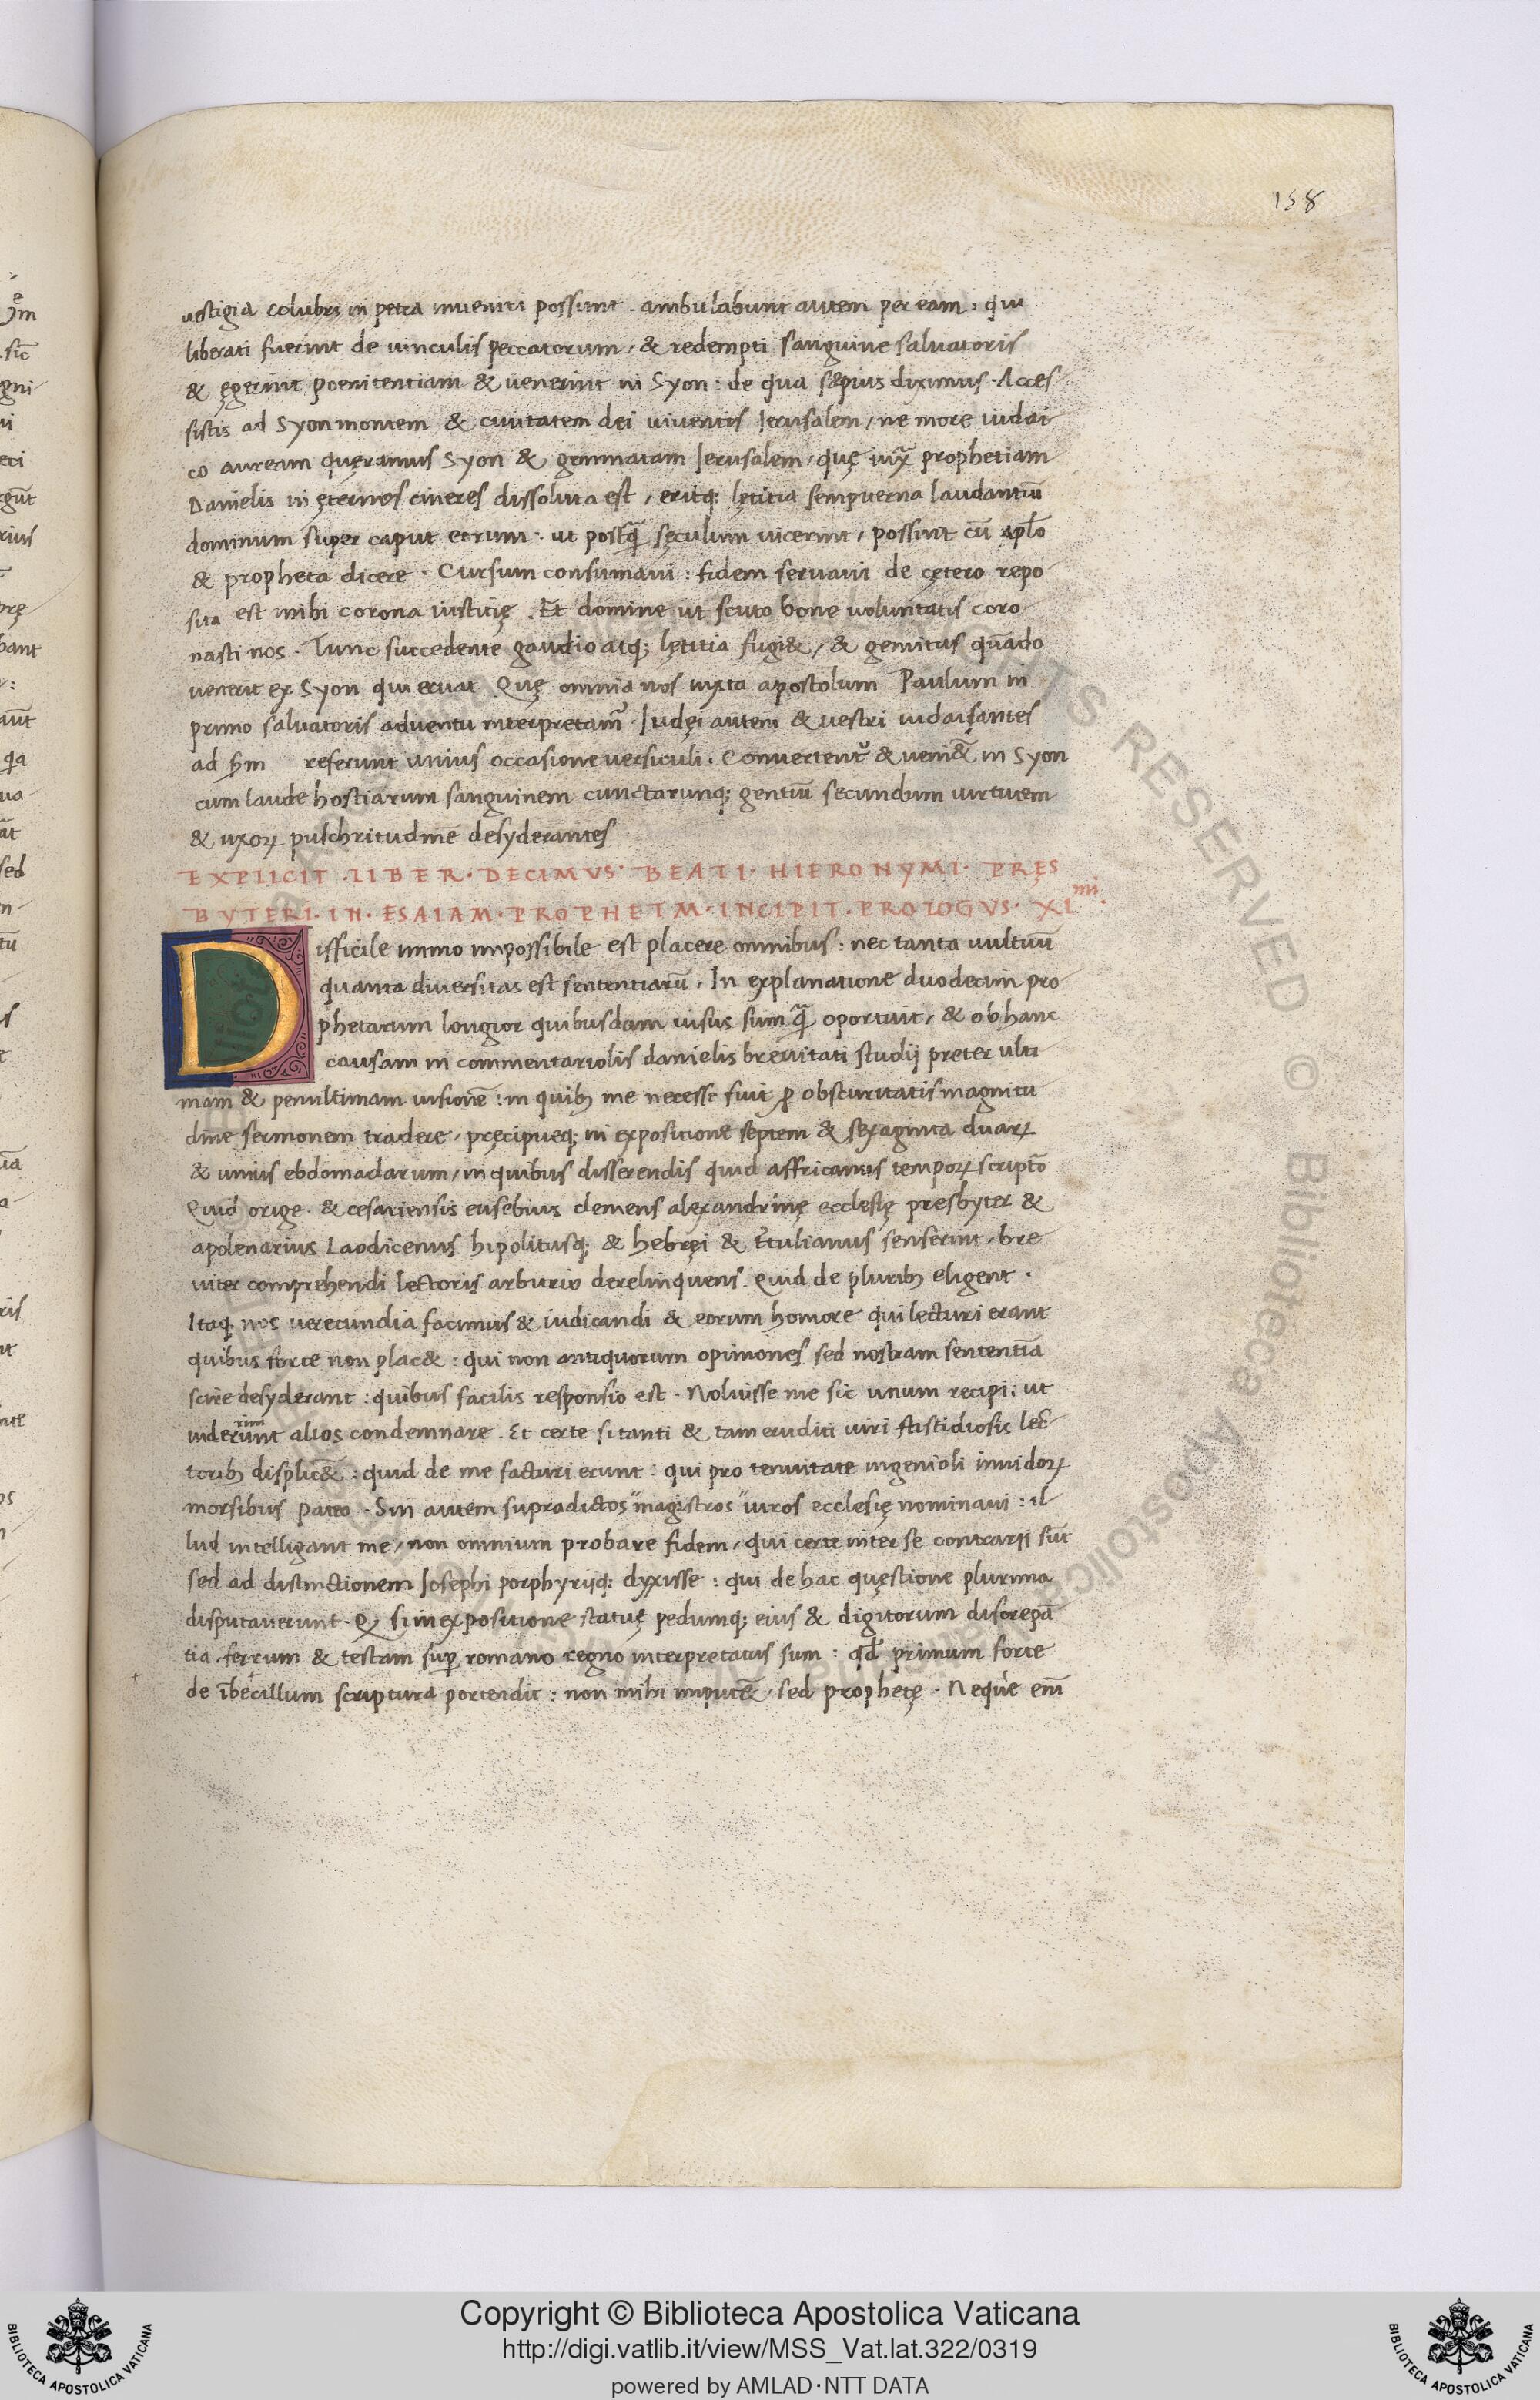 158
uestigia colubri in petra inueniri possunt . ambulabunt autem per eam : qui
liberati fuerint de uinculis peccatorum / & redempti sanguine saluatoris
& ęgerint poenitentiam & uenerint in Syon : de qua sæpius diximus . Acces
sistis ad Syon montem & ciuitatem dei uiuentis Ierusalem / ne more iudai
co auream quęramus Syon & gemmatam Ierusalem / quę iux̄ prophetiam
Danielis in ęternos cineres dissoluta est / eritq; lętitia sempiterna laudantiū
dominum super caput eorum . ut postq̄ sęculum uicerint / possint cū apl̄o
& propheta dicere . Cursum consumaui : fidem seruaui de cętero repo
sita est mihi corona iusticię . Et domine ut scuto bone uoluntatis coro
nasti nos . Tunc succedente gaudio atq; lętitia fugi& / & gemitus quādo
uenerit ex Syon qui eruat Quę omnia nos iuxta apostolum Paulum in
primo saluatoris aduentu interpretam̄ . Iudęi autem & nostri iudaisantes
ad h̄m referunt unius occasione uersiculi . Conuertent̄ & ueni&̄ in Syon
cum laude hostiarum sanguinem cunctarunq; gentiū secundum uirtutem
& uxoꝝ pulchritudinē desyderantes
EXPLICIT . LIBER . DECIMVS . BEATI . HIERONYMI . PRĘS
BYTERI . IN . ESAIAM . PROPHETM . INCIPIT . PROLOGVS . XI mi .
Difficile immo impossibile est placere omnibus : nec tanta uultuū
quanta diuersitas est sententiarū . In explanatione duodecim pro
phetarum longior quibusdam uisus sum q̄ oportuit / & ob hanc
causam in commentariolis danielis breuitati studij preter ulti
mam & penultimam uisionē : in quibꝫ me necesse fuit ꝓ obscuritatis magnitu
dine sermonem tradere / pręcipueq; in expositione septem & sexaginta duaꝝ
& unius ebdomadarum / in quibus disserendis quid affricanus tempoꝝ scriptō
Quid orige . & cesariensis eusebius clemens alexandrinę ecclesię presbyter &
apolenarius Laodicenus hipolitusq; & hebręi & Ttulianus senserint / bre
uiter comprehendi lectoris arbitrio derelinquens . Quid de pluribꝫ eligent .
Itaq; nos uerecundia facimus & iudicandi & eorum honore qui lecturi erant
quibus forte non plac& : qui non antiquorum opiniones sed nostram sententiā
scire desyderant : quibus facilis responsio est . Noluisse me sic unum recipi : ut
rim
uiderunt alios condemnare . Et certe si tanti & tam eruditi uiri fastidiosis lec̄
toribꝫ displic&̄ : quid de me facturi erunt : qui pro tenuitate ingenioli inuidoꝝ
morsibus pateo . Sin autem supradictos "magistros" uiros ecclesię nominaui : il
lud intelligant me / non omnium probare fidem / qui certe inter se contrarij sūt
sed ad distinctionem Iosephi porphyrijq; dyxisse : qui de hac quęstione plurima
disputauerunt . Qꝫ si in expositione statuę pedumq; eius & digitorum discrepā
tia . ferrum & testam suꝑ romano regno interpretatus sum : qd̄ primum forte
de ībecillum scriptura portendit : non mihi imput&̄ / sed prophetę . Neque enī
Copyright © Biblioteca Apostolica Vaticana
http://digi.vatlib.it/view/MSS_Vat.lat.322/0319
powered by AMLAD·NTT DATA
BIBLIOTECA APOSTOLICA VATICANA
BIBLIOTECA APOSTOLICA VATICANA